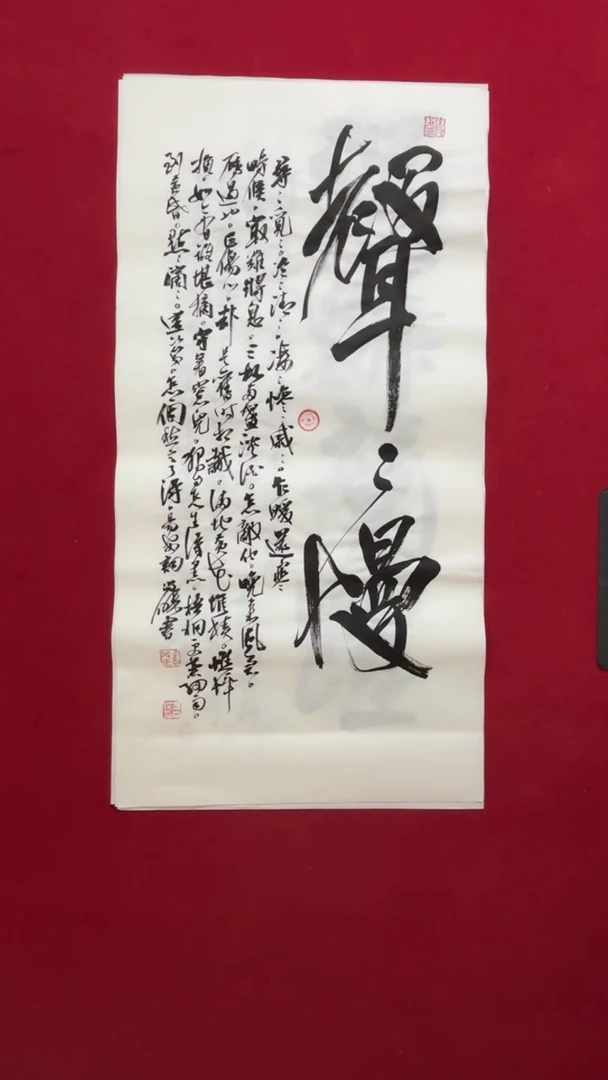 聲〻慢
尋〻覓〻。冷〻清〻。凄〻慘〻戚〻。乍暖還寒
時候。最難將息。三杯兩盞淡酒。怎敵他晚來風急。
雁過也。正傷心。却是舊時相識。滿地黃花堆積。憔悴
損。如今有誰堪摘。守着窗兒。獨自怎生得黑。梧桐更兼細雨。
到黃昏。點〻滴〻。這次第。怎一個愁字了得。易安詞 書